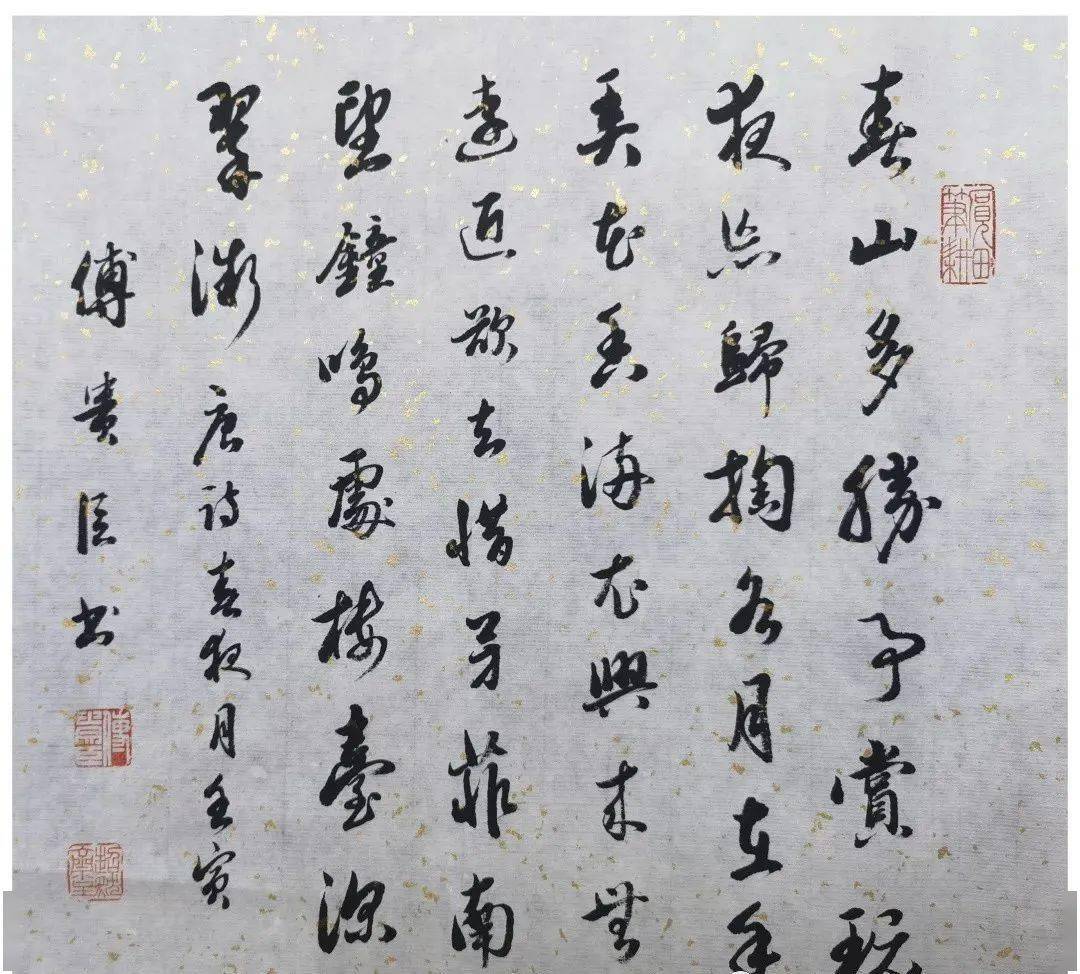 硯田筆耕
春山多勝事賞玩
夜忘歸掬水月在手
弄花香滿衣興來無
遠近欲去惜芳菲南
望鐘鳴處樓臺深
翠微 唐詩春夜月壬寅
傅貴臣書